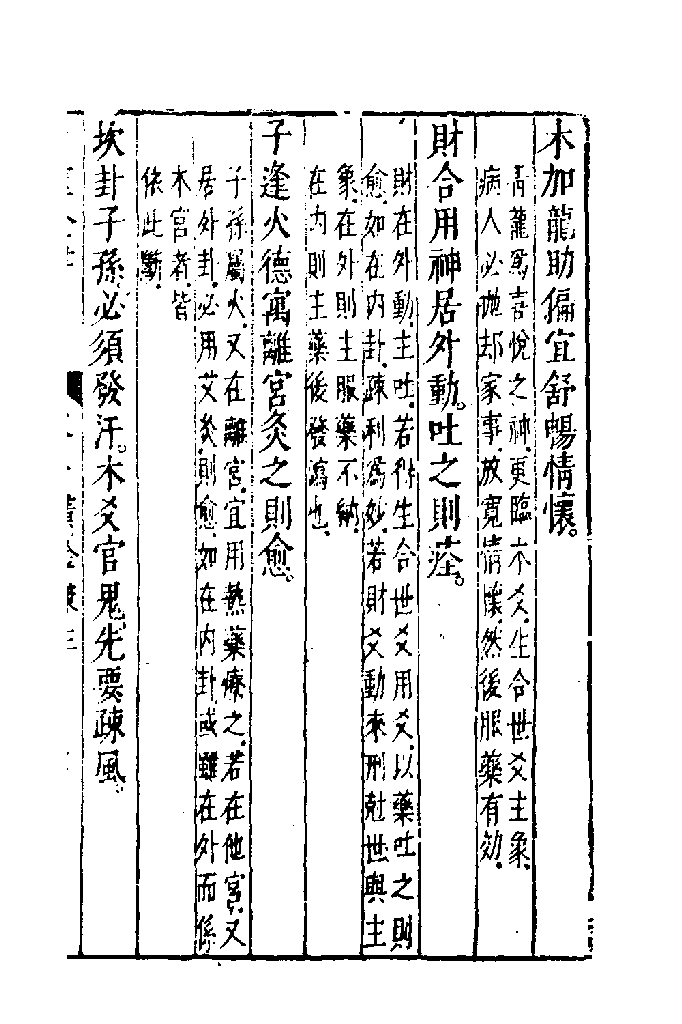 木加龍助偏宜舒暢情懷。
青龍爲喜悅之神更臨木爻生合世爻主象
病人必抛却家事放寛情懷然後服藥有効
財合用神居外動。吐之則痊。
財在外動主吐若得生合世爻用爻以藥吐之則
愈如在内卦疎利爲妙若財爻動來刑尅世與主
象在外則主服藥不納
在内則主藥後發瀉也
子逢火德寓離宮灸之則愈。
子孫屬火又在離宮宜用熱藥療之若在他宮又
居外卦必用艾灸則愈如在内卦或雖在外而係
木宮者皆
依此斷
坎卦子孫必須發汗。木爻官鬼先要疎風。